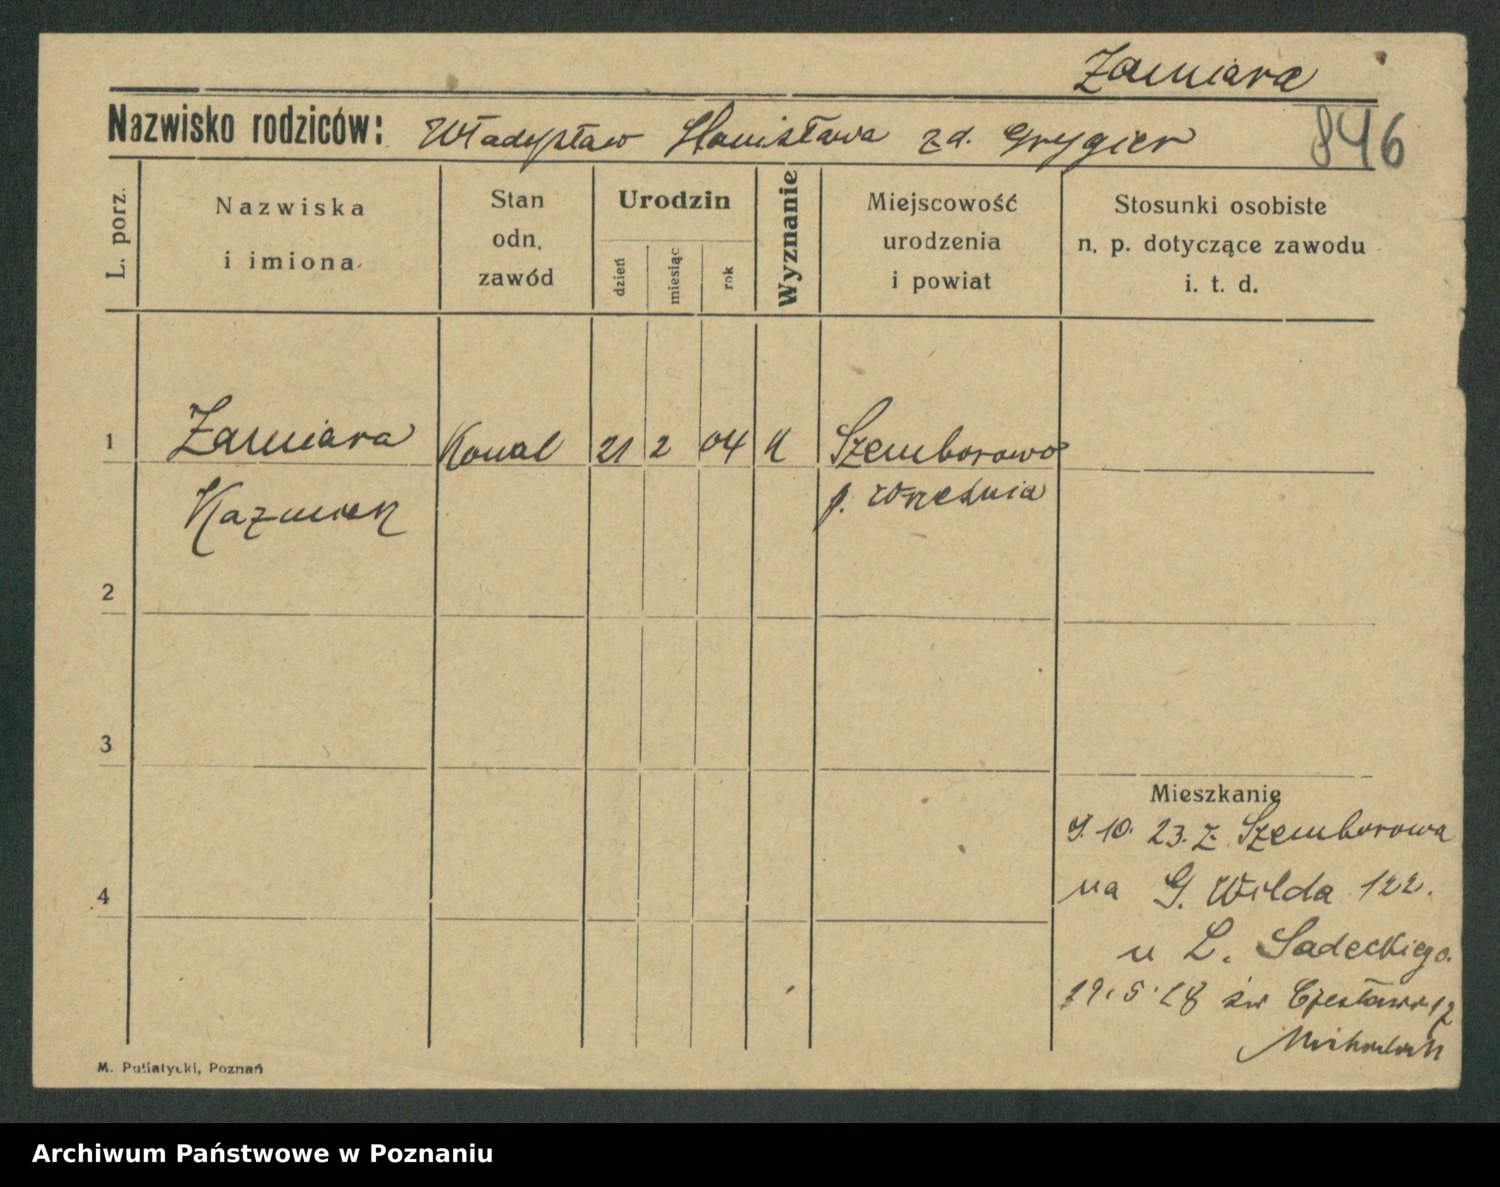 Zamiara
Nazwisko rodziców: Władysław Stanisława zd. Grygier 846
L. porz.
Nazwiska
i imiona
Stan
odn.
zawód
Urodzin
dzień
miesiąc
rok
Wyznanie
Miejscowość
urodzenia
i powiat
Stosunki osobiste
n. p. dotyczące zawodu
i. t. d.
1 Zamiara Kowal 21 2 04 K Szemborowo
Kazmierz p. Września
2
3
4
Mieszkanie
9. 10. 23. z Szemborowa
na G. Wilda 122.
u L. Sadeckiego.
19. 5. 28 św Czesława 12
M. Putiatycki, Poznań
Archiwum Państwowe w Poznaniu